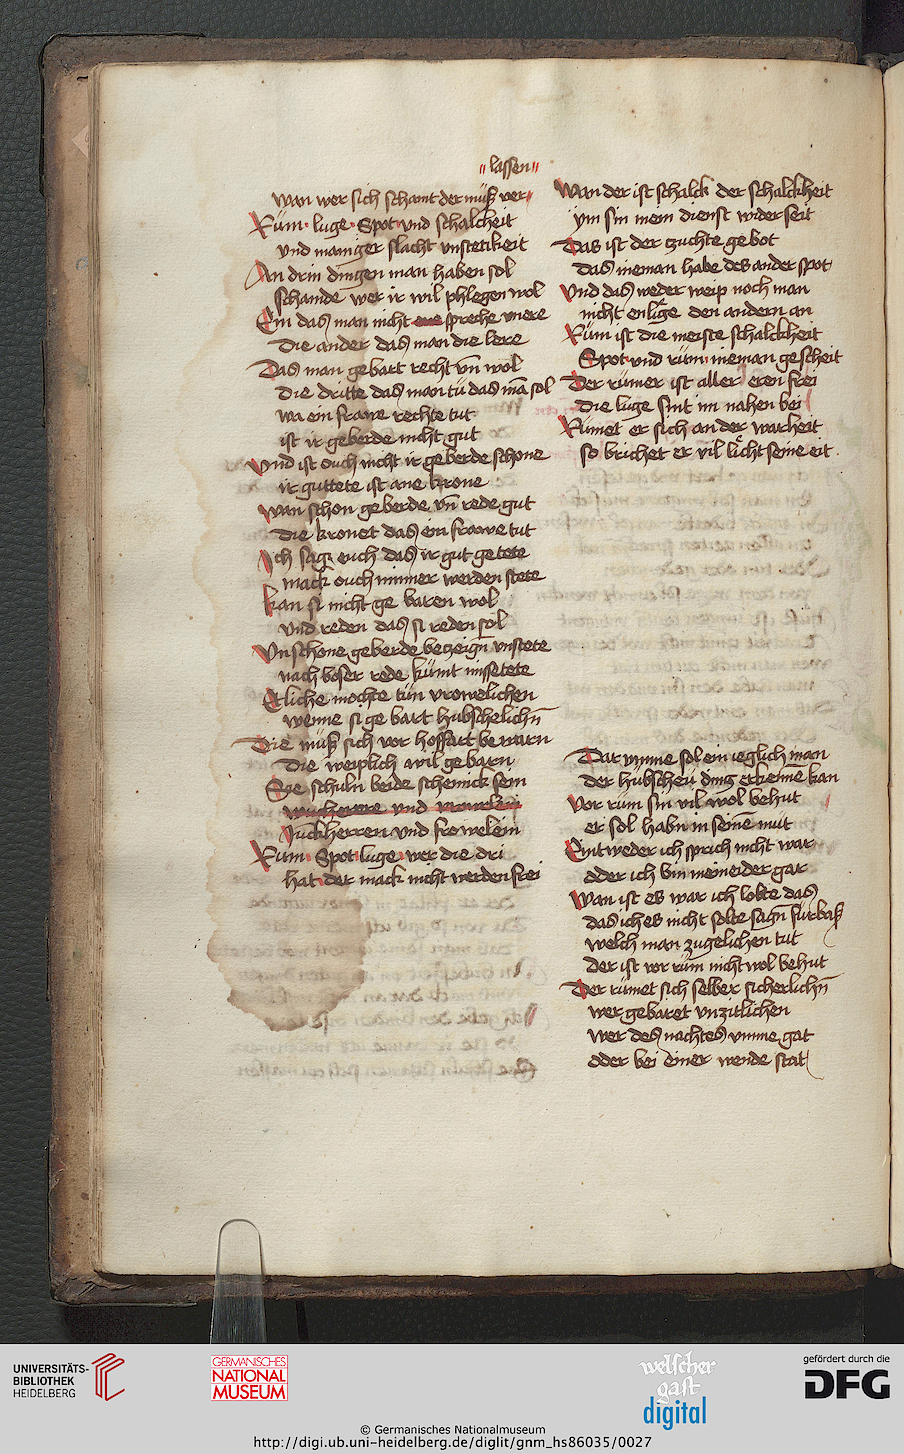 lassen
wan wer sich schamt der müß ver
Rüm · luge · Spot · vnd schalcheit
vnd maniger slacht vnstetikeit
An drin dingen man haben sol
schamde wer ir wil phlegen wol
Ein das man nicht ene spreche mere
Die ander das man die lere
Das man gebart recht vn̄ wol
Die dritte das man tü das mā sol
wa ein frawe rechte tut
ist ir geberde nicht gut
Vnd ist ouch nicht ir geberde schone
ir guttete ist ane krone
wan schon geberde vn̄ rede gut
die kronet das ein frawe tut
Ich sag euch das ir gut getete
mack ouch nimmer werden stete
kan si nicht ge baren wol
vnd reden das si reden sol
Vnschone geberde betzeign̄ vnstete
nach boser rede kümt missetete
Etliche mochte tün vrowelichen
wenne si ge bart hubschelichn̄
Die müß sich vor hoffart bewarn
die weiplich wil gebarn
Spe schuln beide schemick sein
Juckherren vnd frowelein
Rum · Spot · luge · wer die dri
hat · der mack nicht werden frei
Wan der ist schalck der schalckheit
ym sin mem dienst wider seit
Das ist der tzuchte gebot
das nieman habe des ander spot
Vnd das weder weip noch man
nicht enlüge den andern an
Rüm ist die meiste schalckheit
Spot · vnd rüm · nieman gescheit
Der rümer ist aller eren frei
die luge sint im nahen bei
Rümet er sich an der warheit
so brichet er vil licht seine eit
Dar vmme sol ein ieglich man
der hübscheu ding erkenne kan
Vor rüm sin vil wol behut
er sol habn in seinē mut
Eintweder ich sprich nicht war
oder ich bin meineider gar
Wan ist es war ich lobte das
das ich es nicht solte sagn̄ fürbaß
welch man zugelichen tut
der ist vor rüm nicht wol behut
Der rümet sich selber sicherlichn̄
wer gebaret vnzitlichen
wer des nachtes vmme gat
oder bei einer wende stat
UNIVERSITÄTS-
BIBLIOTHEK
HEIDELBERG
GERMANISCHES
NATIONAL
MUSEUM
welscher
gast
digital
gefördert durch die
DFG
© Germanisches Nationalmuseum
http://digi.ub.uni-heidelberg.de/diglit/gnm_hs86035/0027